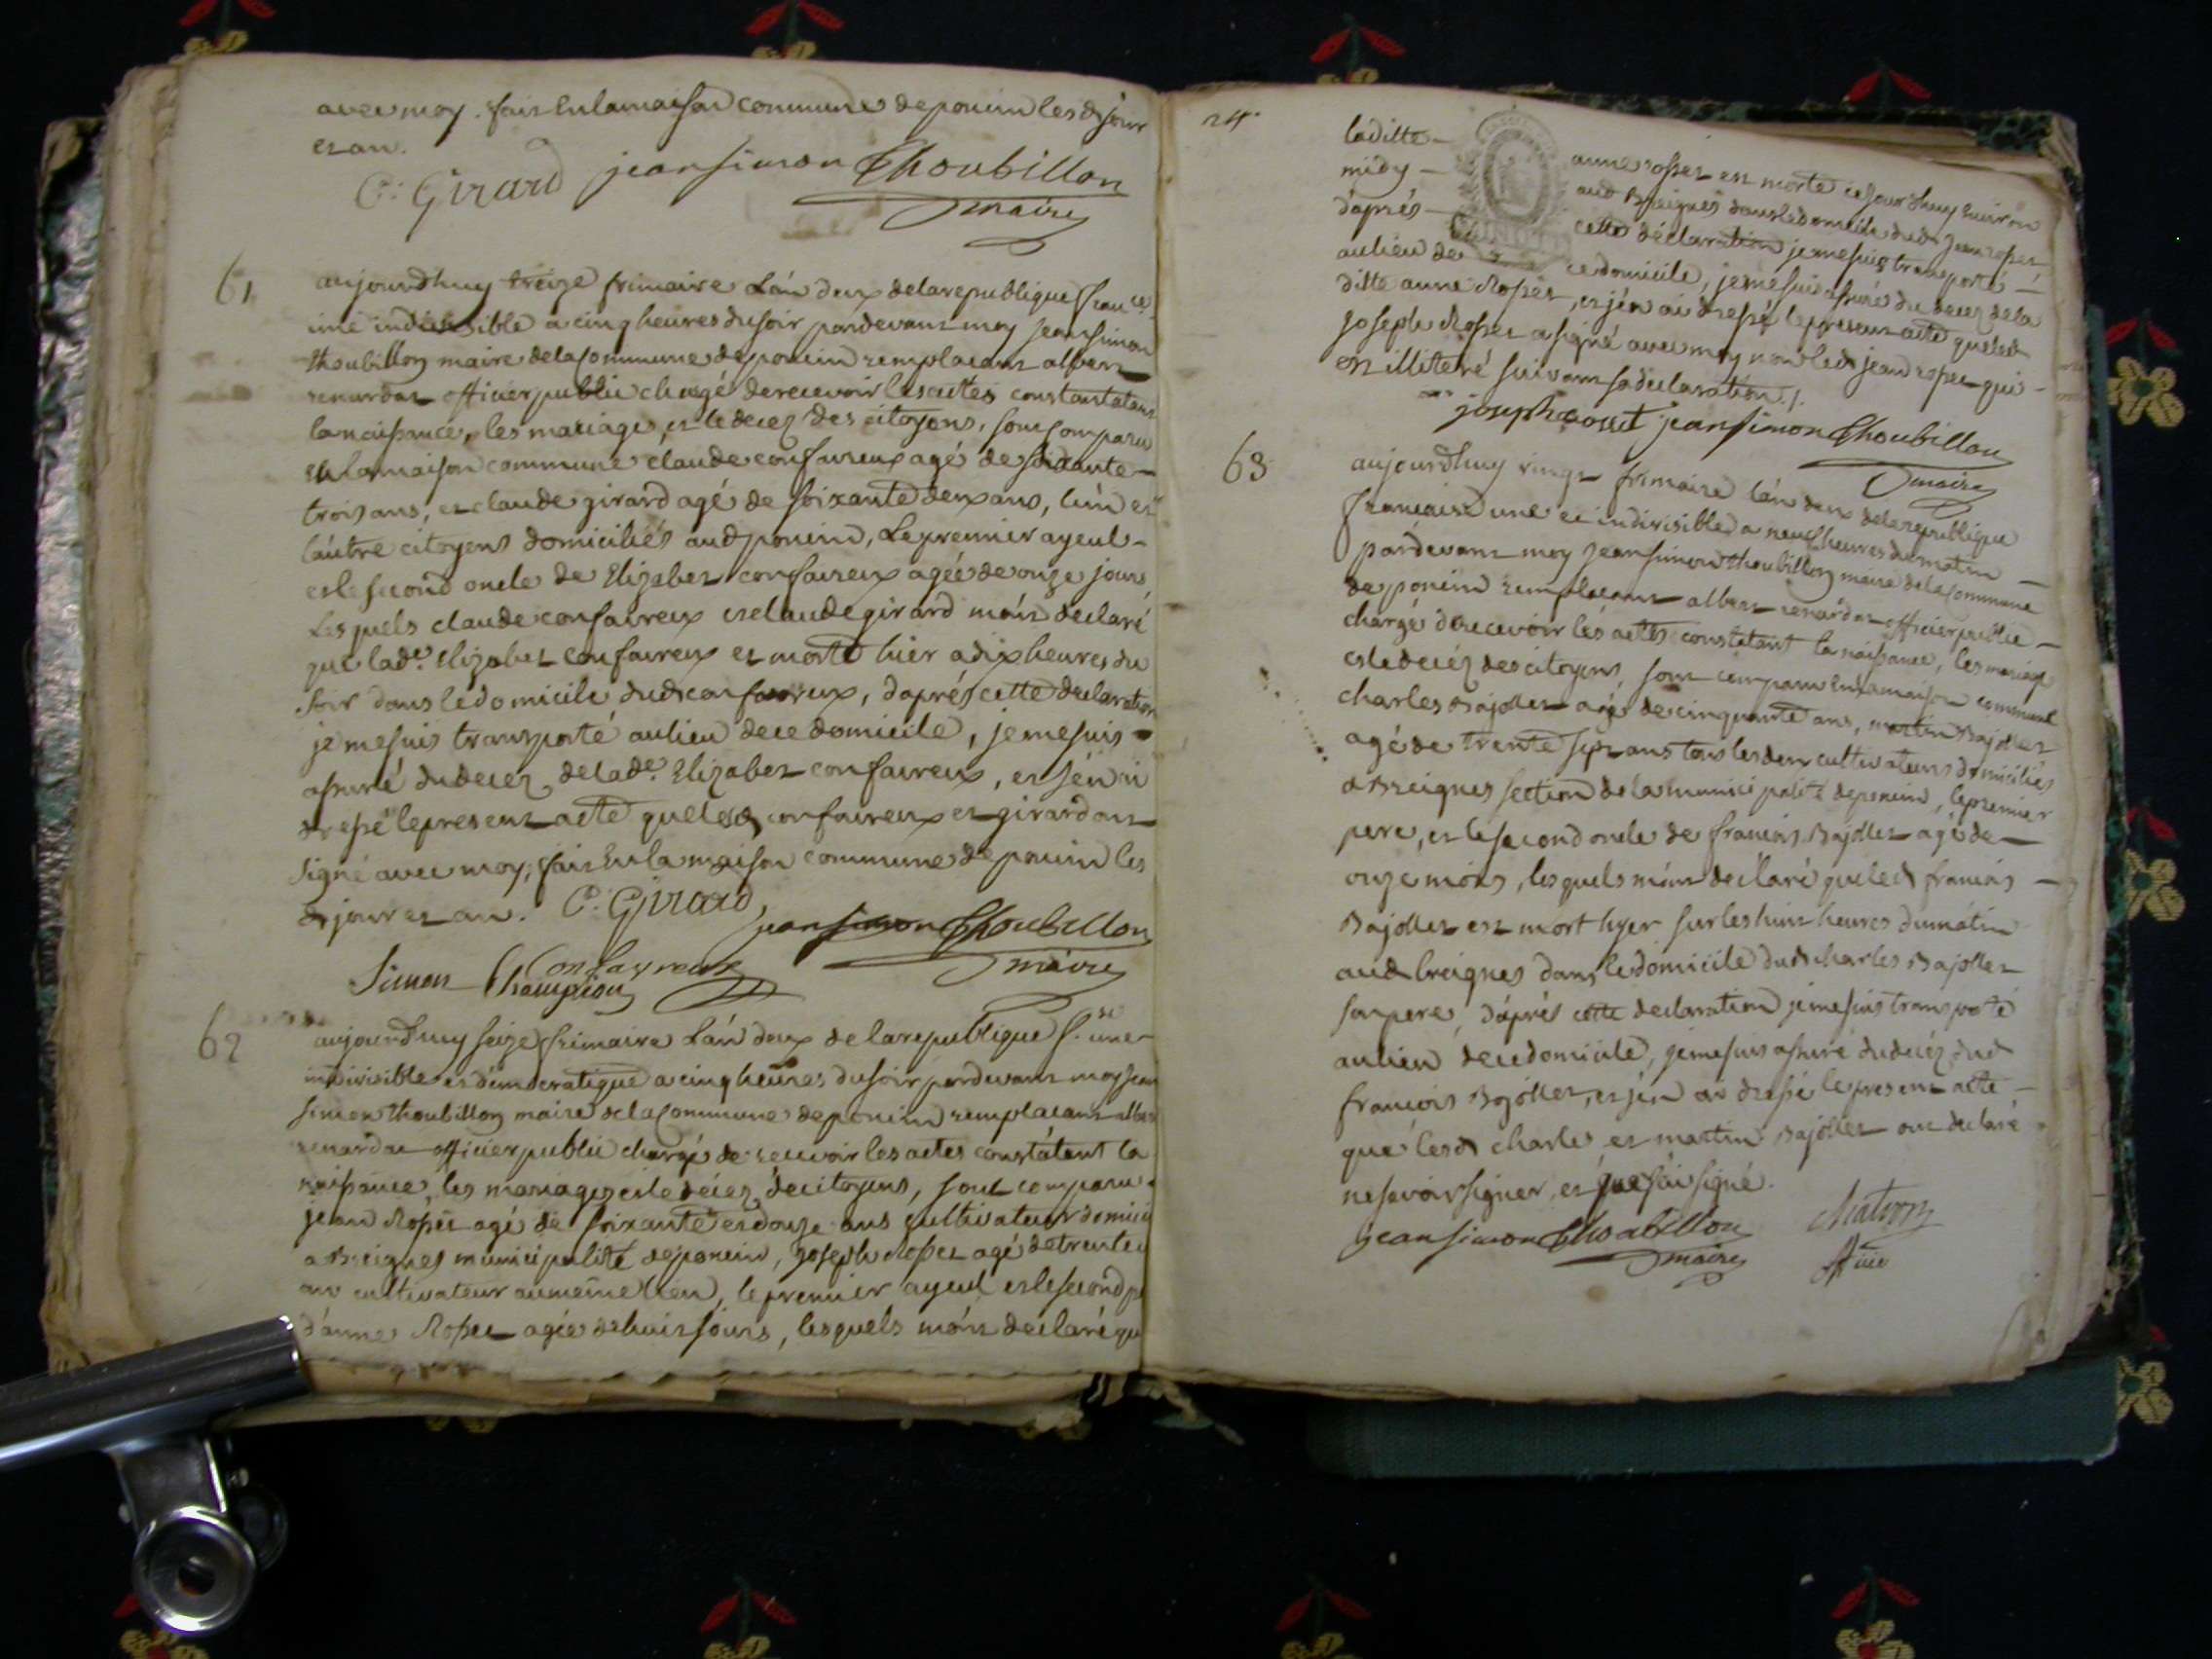 avec moy. fait en la maison commune de poncin les ds jour
et an.
C: Girard jean simon Thoubillon
maire
61
aujourdhuy treize frimaire L'án deux de la republique france.
une indivisible a cinq heures du soir pardevant moy jean simon
thoubillon maire de la commune de poncin remplacant albert
renardat officier public chargé de recevoir les actes constatant
la naissance, les mariages, et le decez des citoyens, sont comparu
en la maison commune claude confaireux agé de soixante
trois ans, et claude girard agé de soixante deux ans, lún et
láutre citoyens domiciliés aud poncin, Le premier ayeul
et le second oncle de Elizabet confaireux agée de onze jours
Les quels claude confaireux et claude girard món declaré
que lade. Elizabet confaireux et morte hier a dix heures du
soir dans le domicile dud confaireux, d'aprés cette declaration
je me suis transporté au lieu de ce domicile, je me suis
assuré du decez de lade. Elizabet confaireux, et jén ai
dressé le present acte que lesd confaireux et girard ont
signé avec moy, fait en la maison commune de poncin les
ds jour et an. C: Girard
jean simon Thoubillon
maire
Confayreux
Simon Champion
62
aujourdhuy seize frimaire L'án deux de la republique f.se une
indivisible et démocratique a cinq heures du soir pardevant moy jean
simon thoubillon maire de la commune de poncin remplacant albert
renardat officier public chargé de recevoir les actes constátant la
naissance, les mariages et le décez de citoyens, sont comparu
jean Rosset agé de soixante et douze ans cultivateur domici
a Breignes municipalité de poncin, Joseph Rosset agé de trente
ans cultivateur au méme lieu, le premier ayeul et le second p
d'anne Rosset agée de huit jours, lesquels món declaré qu
24.
laditte anne rosset est morte cejourdhuy environ
midy aud Breignes dans le domicile dud jean rosset
d'aprés cette déclaration je me suis transporté
au lieu de ce domicile, je me suis assuré du decez de la
ditte anne Rosset, et jén ai dressé le present acte que led
joseph Rosset a signé avec moy non led jean rosset qui
est illiteré suivant sa declaration./.
joseph rosset jean simon Thoubillon
maire
63
aujourdhuy vingt frimaire lán deux de la republique
francaise une et indivisible a neuf heures du matin
pardevant moy jean simon thoubillon maire de la commune
de poncin remplacant albert renardat officier public
chargé de recevoir les actes constatant la naissance, les mariage
et le decéz des citoyens, sont comparu en la maison commune
charles Bajollet agé de cinquante ans, martin Bajollet
agé de trente sept ans tous les deux cultivateurs domiciliés
a Breignes section de la municipalité de poncin, le premier
pere, et le second oncle de francois Bajollet agé de
onze mois, les quels mónt déclaré que led francois
Bajollet est mort hyer sur les huit heures du mátin
aud breignes dans le domicile dud charles Bajollet
son pere, d'aprés cette declaration je me suis transporté
au lieu de ce domicile, je me suis assuré du decéz dud
francois Bajollet, et jén ai dressé le present acte
que lesd charles et martin Bajollet ont declaré
ne savoir signer, et que jái signé.
jean simon Thoubillon
maire